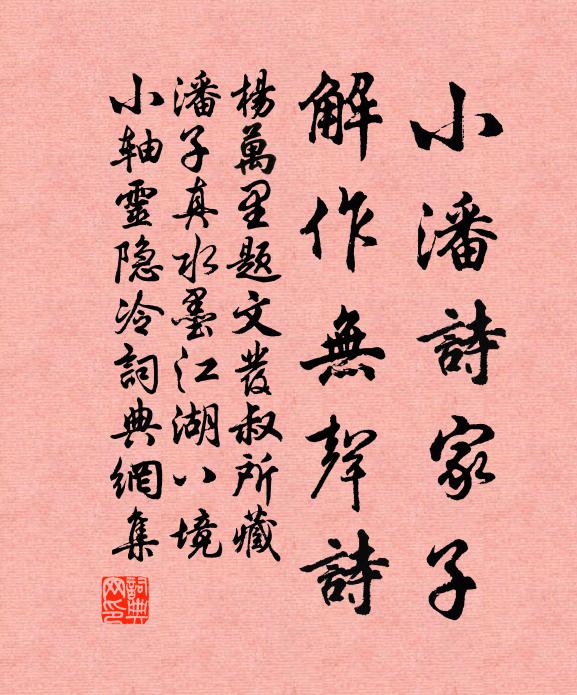 小潘詩家子
解作無聲詩
楊萬里題文發叔所藏
潘子真水墨江湖八境
小軸靈隐冷詞典網集
詞典網印